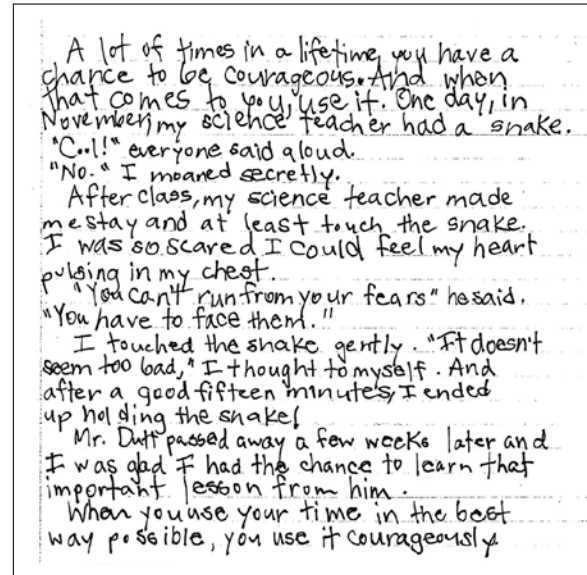 A lot of times in a lifetime, you have a
chance to be courageous. And when
that comes to you, use it. One day, in
November, my science teacher had a snake.
"C..l!" everyone said aloud.
"No." I moaned secretly.
After class, my science teacher made
me stay and at least touch the snake.
I was so scared I could feel my heart
pulsing in my chest.
"You can't run from your fears" he said.
"You have to face them."
I touched the snake gently. "It doesn't
seem too bad," I thought to myself. And
after a good fifteen minutes, I ended
up holding the snake!
Mr. Duff passed away a few weeks later and
I was gad I had the chance to learn that
important lesson from him.
When you use your time in the best
way possible, you use it courageously